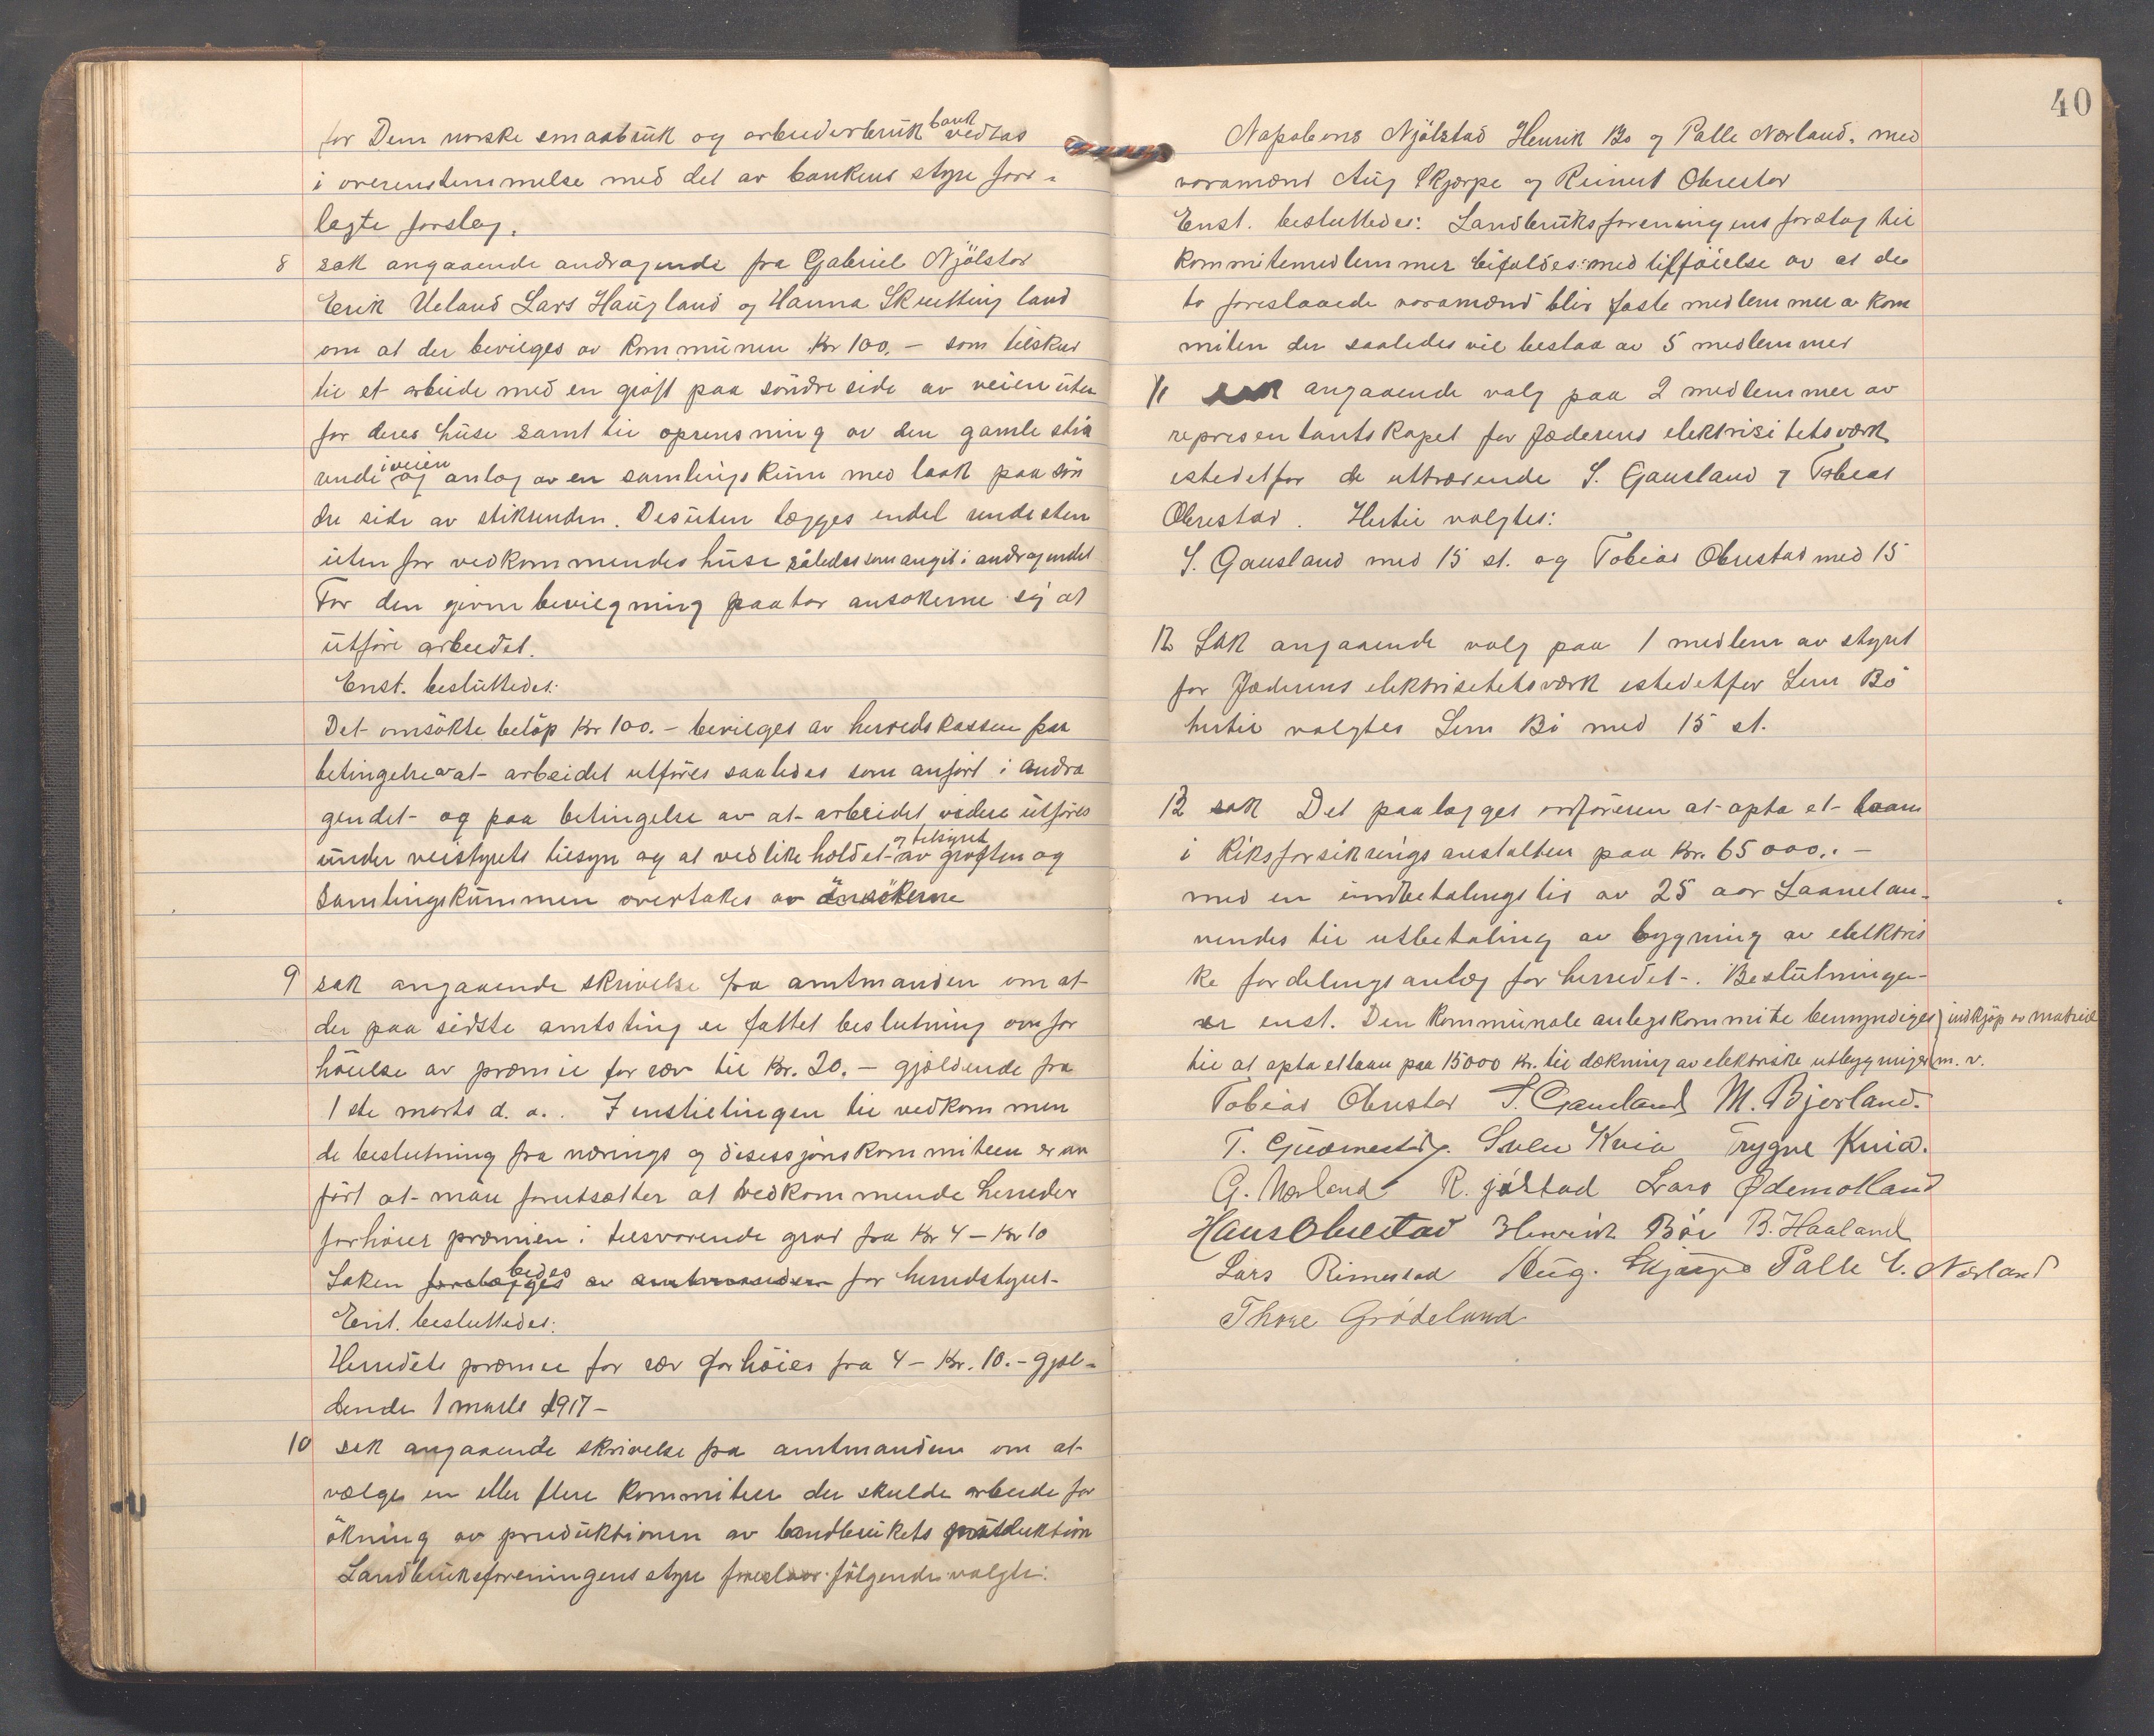 for Den norske smaabruk og arbeiderbruk bank vedtas
i overenstemmelse med det av bankens styre fore-
lagte forslag.
8 sak angaaende andragende fra Gabriel Njölstad
Erik Ueland Lars Haugland og Hanna Skretting land
om at der bevilges av kommunen Kr 100.- som tilskud
til et arbeide med en gröft paa söndre side av veien uten
for deres huse samt til oprensning av den gamle stik
rende i veien og anlag av en samlingskum med laak paa sön
dre side av stikrenden. Desuten lægges endel rendesten
uten for vedkommendes huse således som angit i andragendet
For den givne bevilgning paatar ansøkerne sig at
utföre arbeidet.
Enst. besluttedes:
Det omsökte belöp Kr 100.- bevilges av herredskassen paa
betingelse av at arbeidet utföres saaledes som anfört i andra
gendet og paa betingelse av at arbeidet videre utföres
under veistyrets tilsyn og at vedlikeholdet og tilsynet av gröften og
samlingskummen overtakes av ansökerne
9 sak angaaende skrivelse fra amtmanden om at
der paa sidste amtsting er fattet beslutning om for
höielse av præmie for ræv til Kr. 20.- gjældende fra
1ste marts d. a.. I instillingen til vedkommen
de beslutning fra nærings og desisjonskommiteen er an
fört at man forutsætter at vedkommende herreder
forhöier præmien i tilsvarende grad fra Kr 4 - Kr 10
Saken forelægges bedes av amtmanden for herredstyret-
Enst. besluttedes:
Herredets præmie for ræv forhöies fra 4 - Kr. 10.- gjæl-
dende 1 marts 1917-
10 sak angaaende skrivelse fra amtmanden om at
vælge en eller flere kommiteer der skulde arbeide for
ökning av produktionen av landbrukets produktion
Landbruksforeningens styre foreslaar fölgende valgte:
40
Napoleons Njölstad Henrik Bø og Palle Nærland. med
varamænd Aug Skjærpe og Reinert Obrestad
Enst. besluttedes: Landbruksforeningens forslag til
kommitemedlemmer bifaldes med tilföielse av at de
to foreslaaede varamænd blir faste medlemmer av kom
miten der saaledes vil bestaa av 5 medlemmer
11 sak angaaende valg paa 2 medlemmer av
representantskapet for Jæderens elektrisitetsværk
istedetfor de uttrædende S. Gausland og Tobias
Obrestad. Hertil valgtes:
S. Gausland med 15 st. og Tobias Obrestad med 15
12 Sak angaaende valg paa 1 medlem av styret
for Jæderens elektrisitetsværk istedetfor Sem Bö
hertil valgtes Sem Bö med 15 st.
13 sak Det paalægges ordföreren at opta et laan
i Riksforsikringsanstalten paa Kr. 65000.-
med en indbetalingstid av 25 aar Laanet an-
vendes til utbetaling av bygning av elektris
ke fordelingsanlæg for herredet-. Beslutningen
er enst. Den kommunale anlegskommite bemyndiges indkjöp av matriel
til at opta et laan paa 15000 Kr. til dækning av elektriske utbygninger m. v.
Tobias Obrestad S. Gausland M. Bjorland.
T. Gudmestad. Svele Kvia Trygve Kvia.
G. Nærland R. Njålstad Lars Ødemotland
Hans Obrestad Henrik Böe B. Haaland
Lars Rimestad Aug. Skjærpe Palle E. Nærland
Thore Grödeland